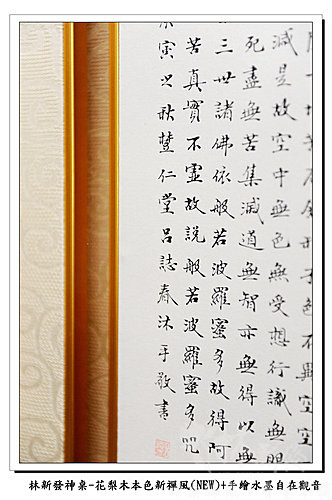 色不異空
滅是故空中無色無受想行識無眼
死盡無苦集滅道無智亦無得以無
三世諸佛依般若波羅蜜多故得阿
苦真實不虛故說般若波羅蜜多咒
寅之秋仁堂呂誌春沐手敬書
林新發神桌-花梨木本色新禪風(NEW)+手繪水墨自在觀音